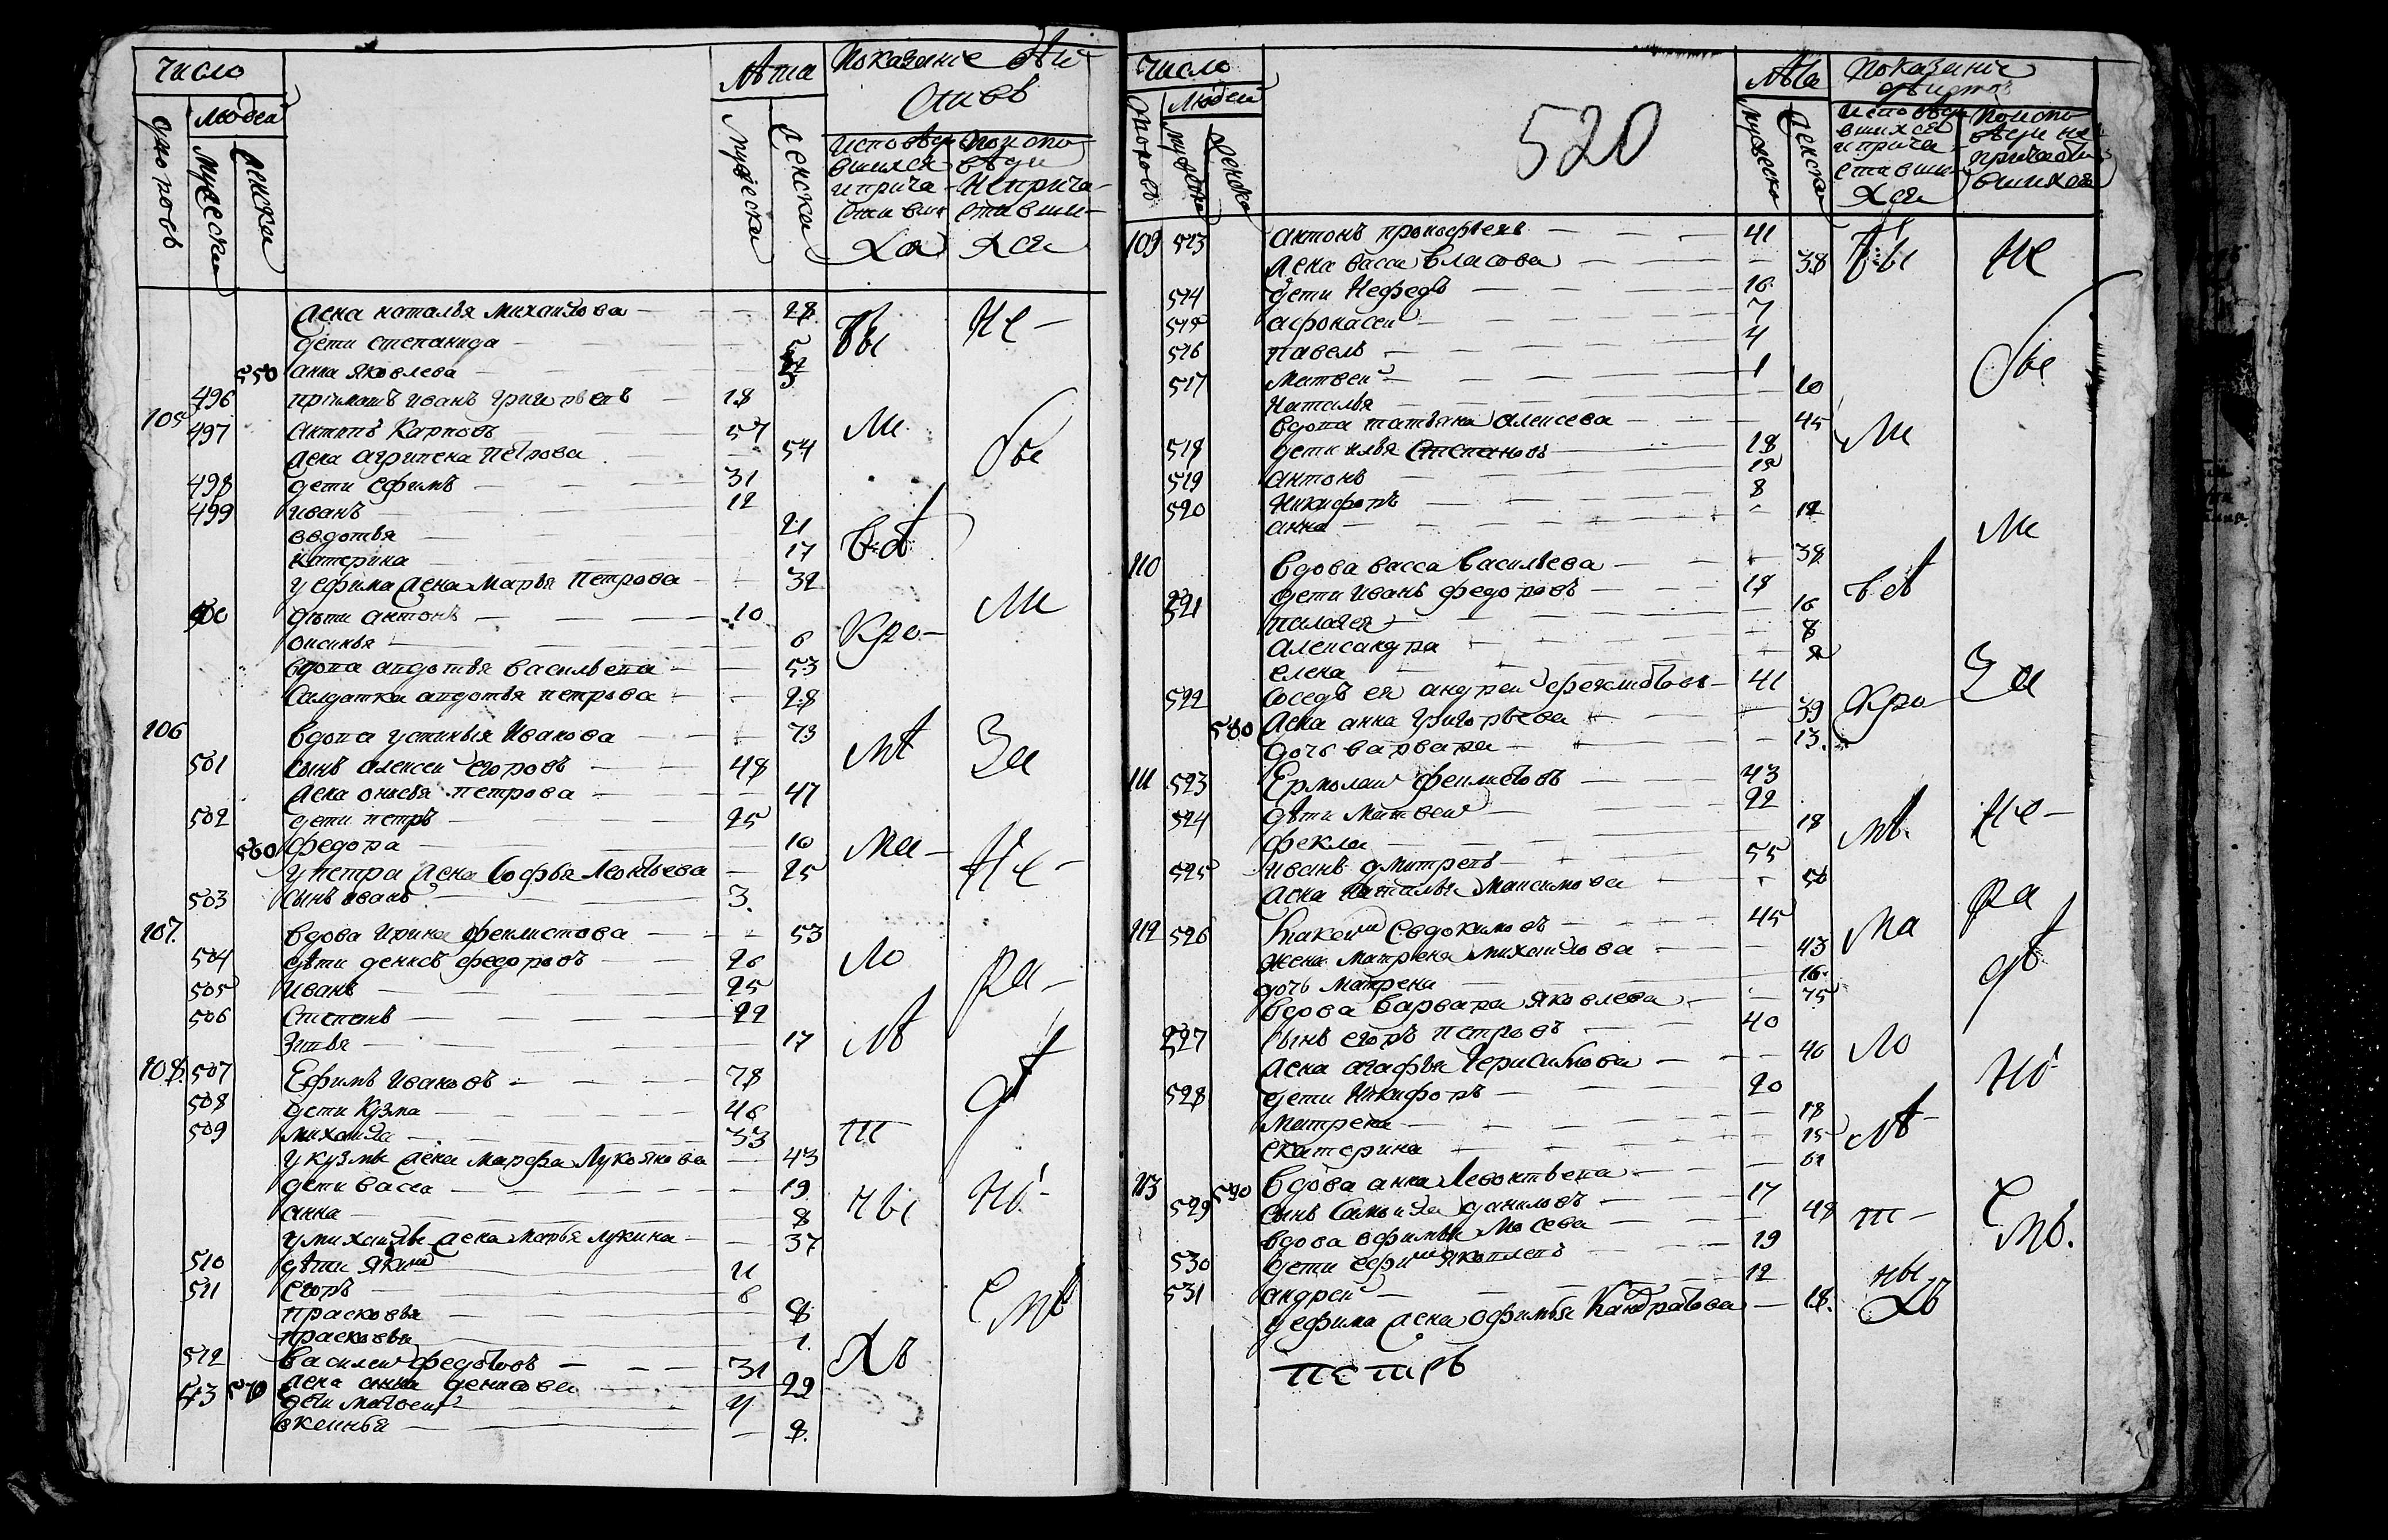 Число
Лѣта
Показанiе Дѣй
ствъ
людей
дворовъ
мужеска
женска
мужеска
женска
исповѣдавшихся и причастившихся
По исповѣди не причастившихся
жена наталья михайлова 28
дети степанида 5
550 анна яковлева 3
496 приiмашъ иванъ григорьевъ 18
105 497 Карповъ 57
жена агрипена петрова 54
498 дети ефимъ 31
499 иванъ 12
овдотья 21
катерина 17
у ефима жена марья петрова 32
500 дѣти антонъ 10
оксинья 6
вдова авдотья васильева 53
салдатка авдотья петрова 28
106 вдова устинья иванова 73
501 сынъ алексей егоровъ 48
жена онисья петрова 47
502 дети петръ 25
560 федора 10
у петра жена софья леонтьева 25
503 сынъ иванъ 3
107 вдова ирина феклистова 53
504 дѣти денисъ федоровъ 26
505 иванъ 25
506 степанъ 22
17
108 507 Ефимъ ивановъ 78
508 дети кузма 46
509 михайла 33
у кузмы жена марфа лукоянова 43
дети васса 19
анна 8
у михайлы жена марья лукина 37
510 дѣти яким 11
511 егоръ 6
прасковья 8
прасковья 1
512 василей федотовъ 31
570 жена анна денисова 22
513 дети матвей 4
оксинья 8
Число
520
Лѣта
Показанiе дѣйство
дворовъ
людей
мужеска
женска
мужеска
женска
исповѣдавшихся и причаставшихся
по исповѣди не причастившихся
109 513 антонъ прокофьевъ 41
жена васса власова 38
514 дети нефедъ 16
515 афонасей 7
516 павелъ 4
517 матвей 1
наталья 10
вдова татьяна алексева 45
518 дети илья степановъ 18
519 антонъ 15
520 никифоръ 8
анна 12
110 вдова васса васильева 38
521 дети иванъ федоровъ 18
палагея 16
александра 8
елена 2
522 соседъ ея андрей феклистовъ 41
580 жена анна григорьева 39
дочь варвара 13
111 523 Ермолай феклистовъ 43
524 дѣти матвей 22
фекла 18
525 иванъ дмитревъ 55
жена наталья максимова 50
112 526 евдокимовъ 45
жена матрена михайлова 43
дочь матрена 16
вдова варвара яковлева 75
527 сынъ егоръ петровъ 40
жена агафья герасимова 40
528 дети никифоръ 20
матрена 18
екатерина 15
113 590 вдова анна левонтьева 61
529 сынъ самойла даниловъ 17
вдова офимья мосева 48
530 дети ефим яковлевъ 19
531 андрей 12
у ефима жена офимья кандратова 18
петръ